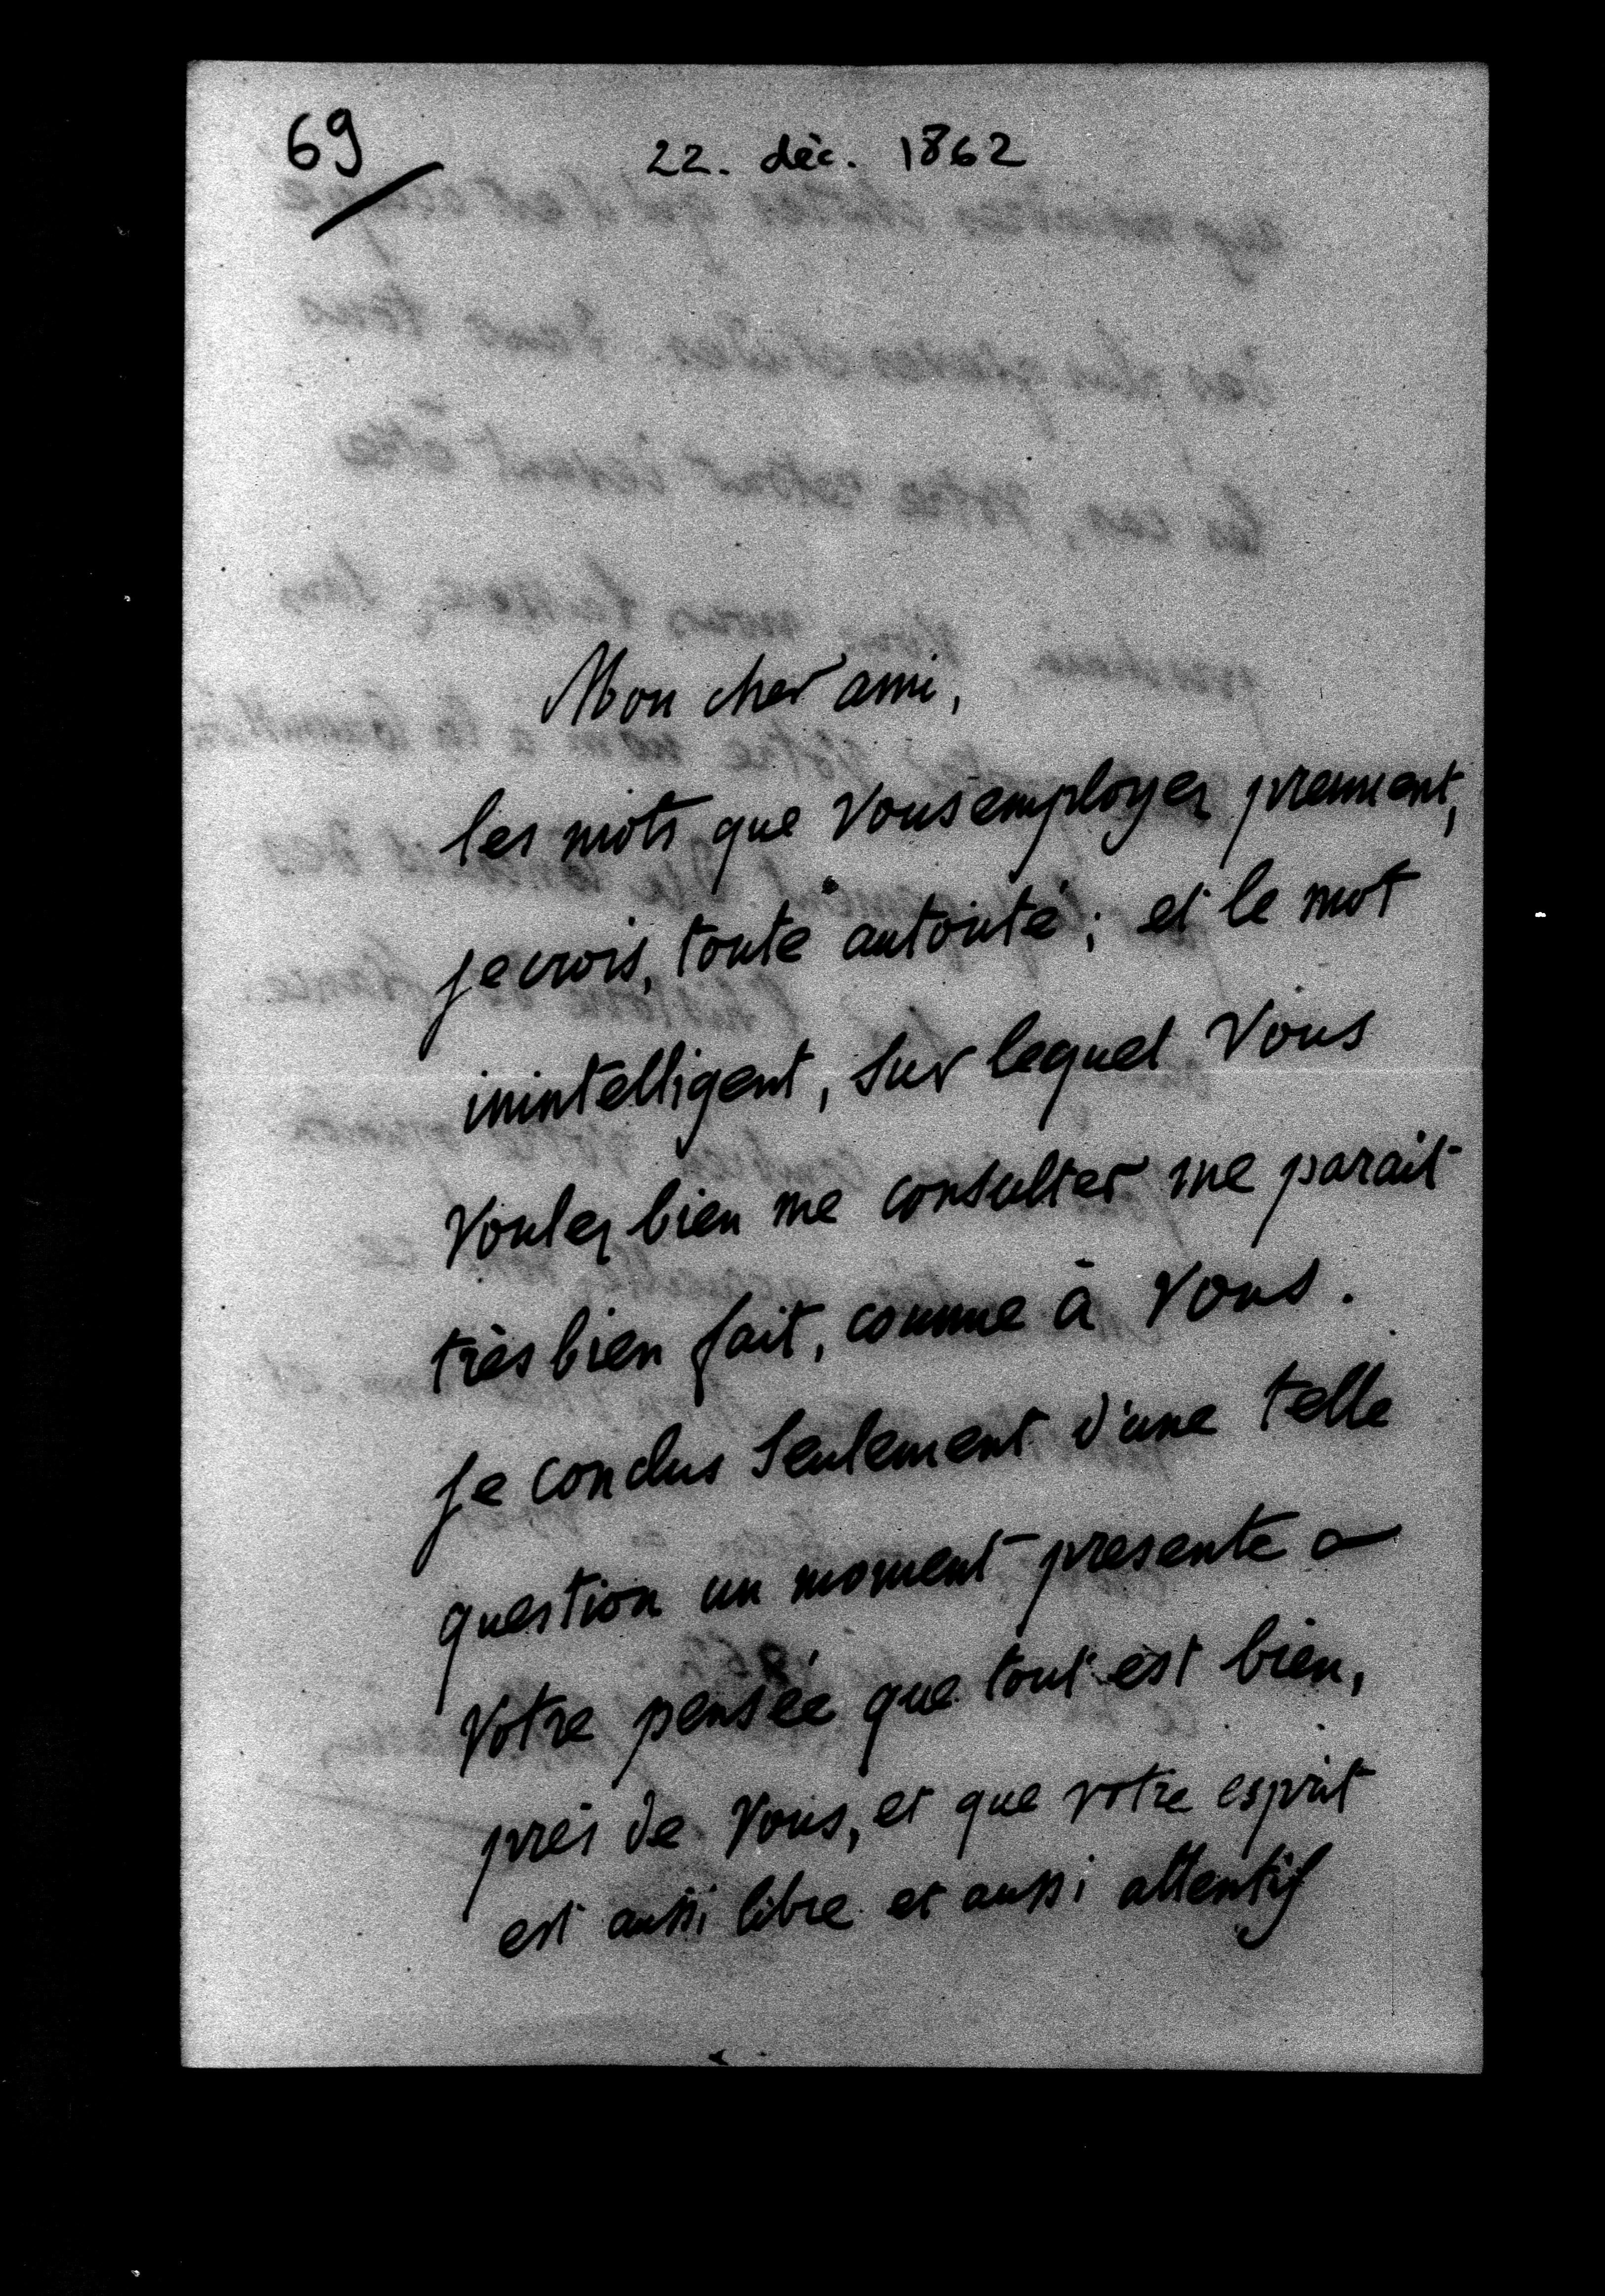 69
22. déc. 1862
Mon cher ami,
les mots que vous employez prennent,
je crois, toute autorité ; et le mot
inintelligent, sur lequel vous
voulez bien me consulter me parait
très bien fait, comme à vous.
Je conclus seulement d'une telle
question un moment presente a
votre pensée que tout est bien,
près de vous, et que votre esprit
est aussi libre et aussi attentif